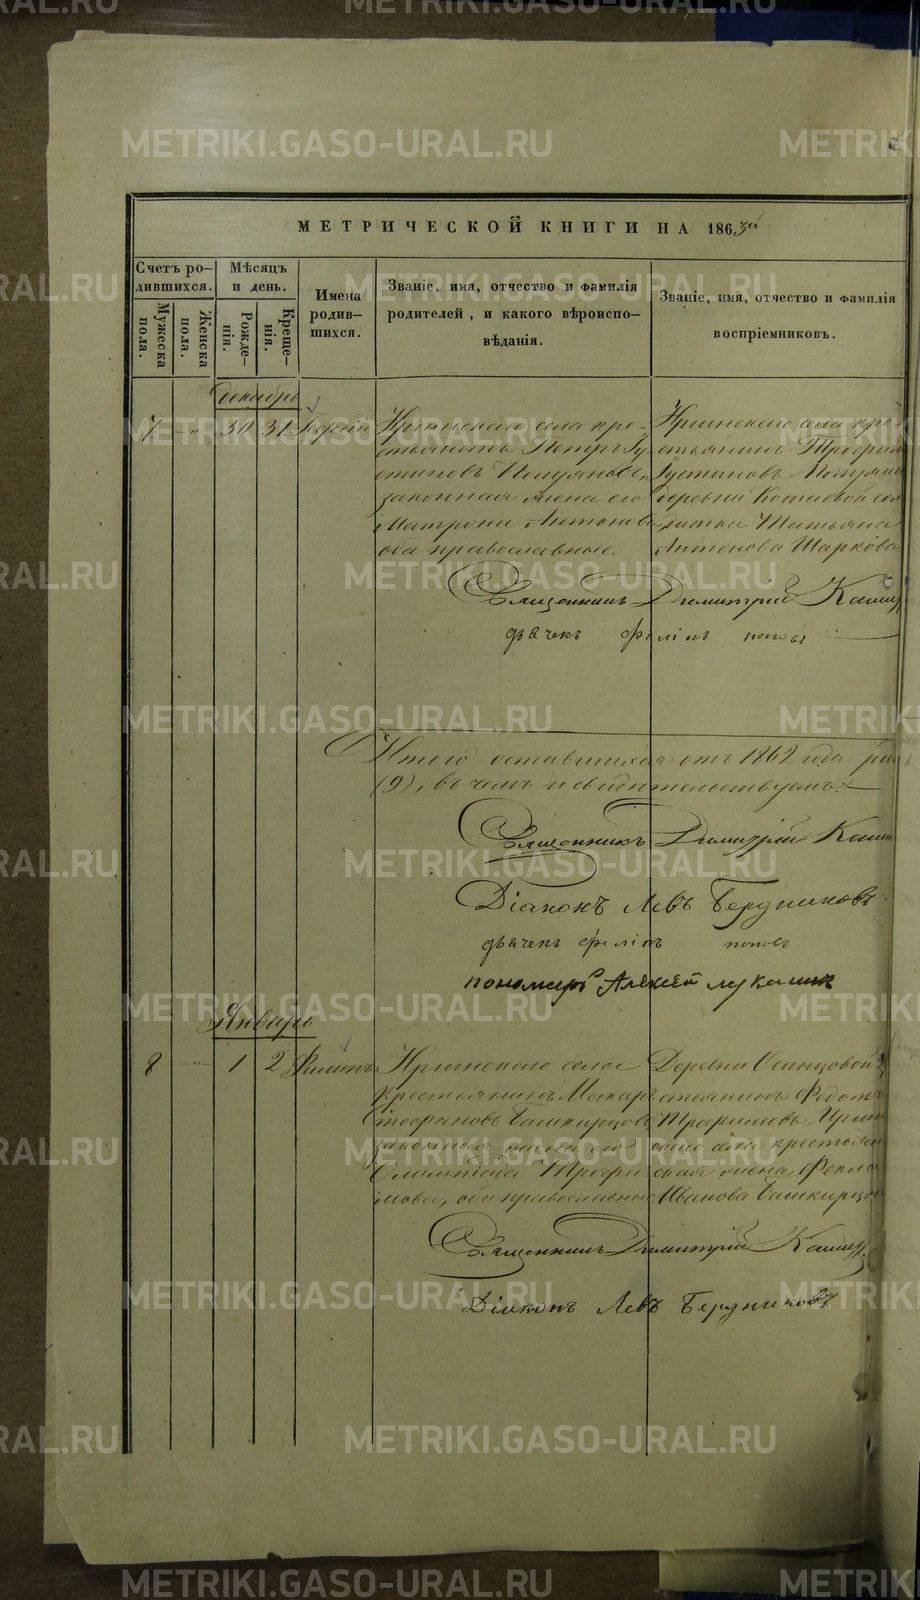 МЕТРИЧЕСКОЙ КНИГИ НА 1863й
Счетъ ро-
дившихся.
Мужеска
пола.
Женска
пола.
Мѣсяцъ
и день.
Рожде-
нія.
Креще-
нія.
Имена
родив-
шихся.
Званіе, имя, отчество и фамилія
родителей, и какого вѣроиспо-
вѣданія.
Званіе, имя, отчество и фамилія
воспріемниковъ.
декабрь
7 30 31
села кре-
стьянинъ Петръ Іу
стиновъ
законная жена его
Матрона Антонова
оба православные.
села кре-
стьянинъ Трофим
Іустиновъ
деревни сол
датка Татьяна
Антонова Шаркова
Священникъ Димитрій
дьячекъ филіпъ поповъ
Итого оставшихся отъ 1862 года
(9), въ чемъ и свидѣтельствуемъ:
Священникъ Димитрій
Діаконъ Левъ Бердниковъ
дьячекъ филіпъ поповъ
пономарь Алексей лукани
Январь
8 1 2 Филипъ
села
крестьянинъ Макаръ
Стефановъ Башкирцовъ
законная жена его
Олимпіада Трофи
мова, оба православные
Деревни Осинцовой
стьянинъ Федотъ
Трофимовъ
села крестьян
ская жена Фекла
Иванова Башкирцов
Священникъ Димитрій
Діаконъ Левъ Бердниковъ
METRIKI.GASO-URAL.RU